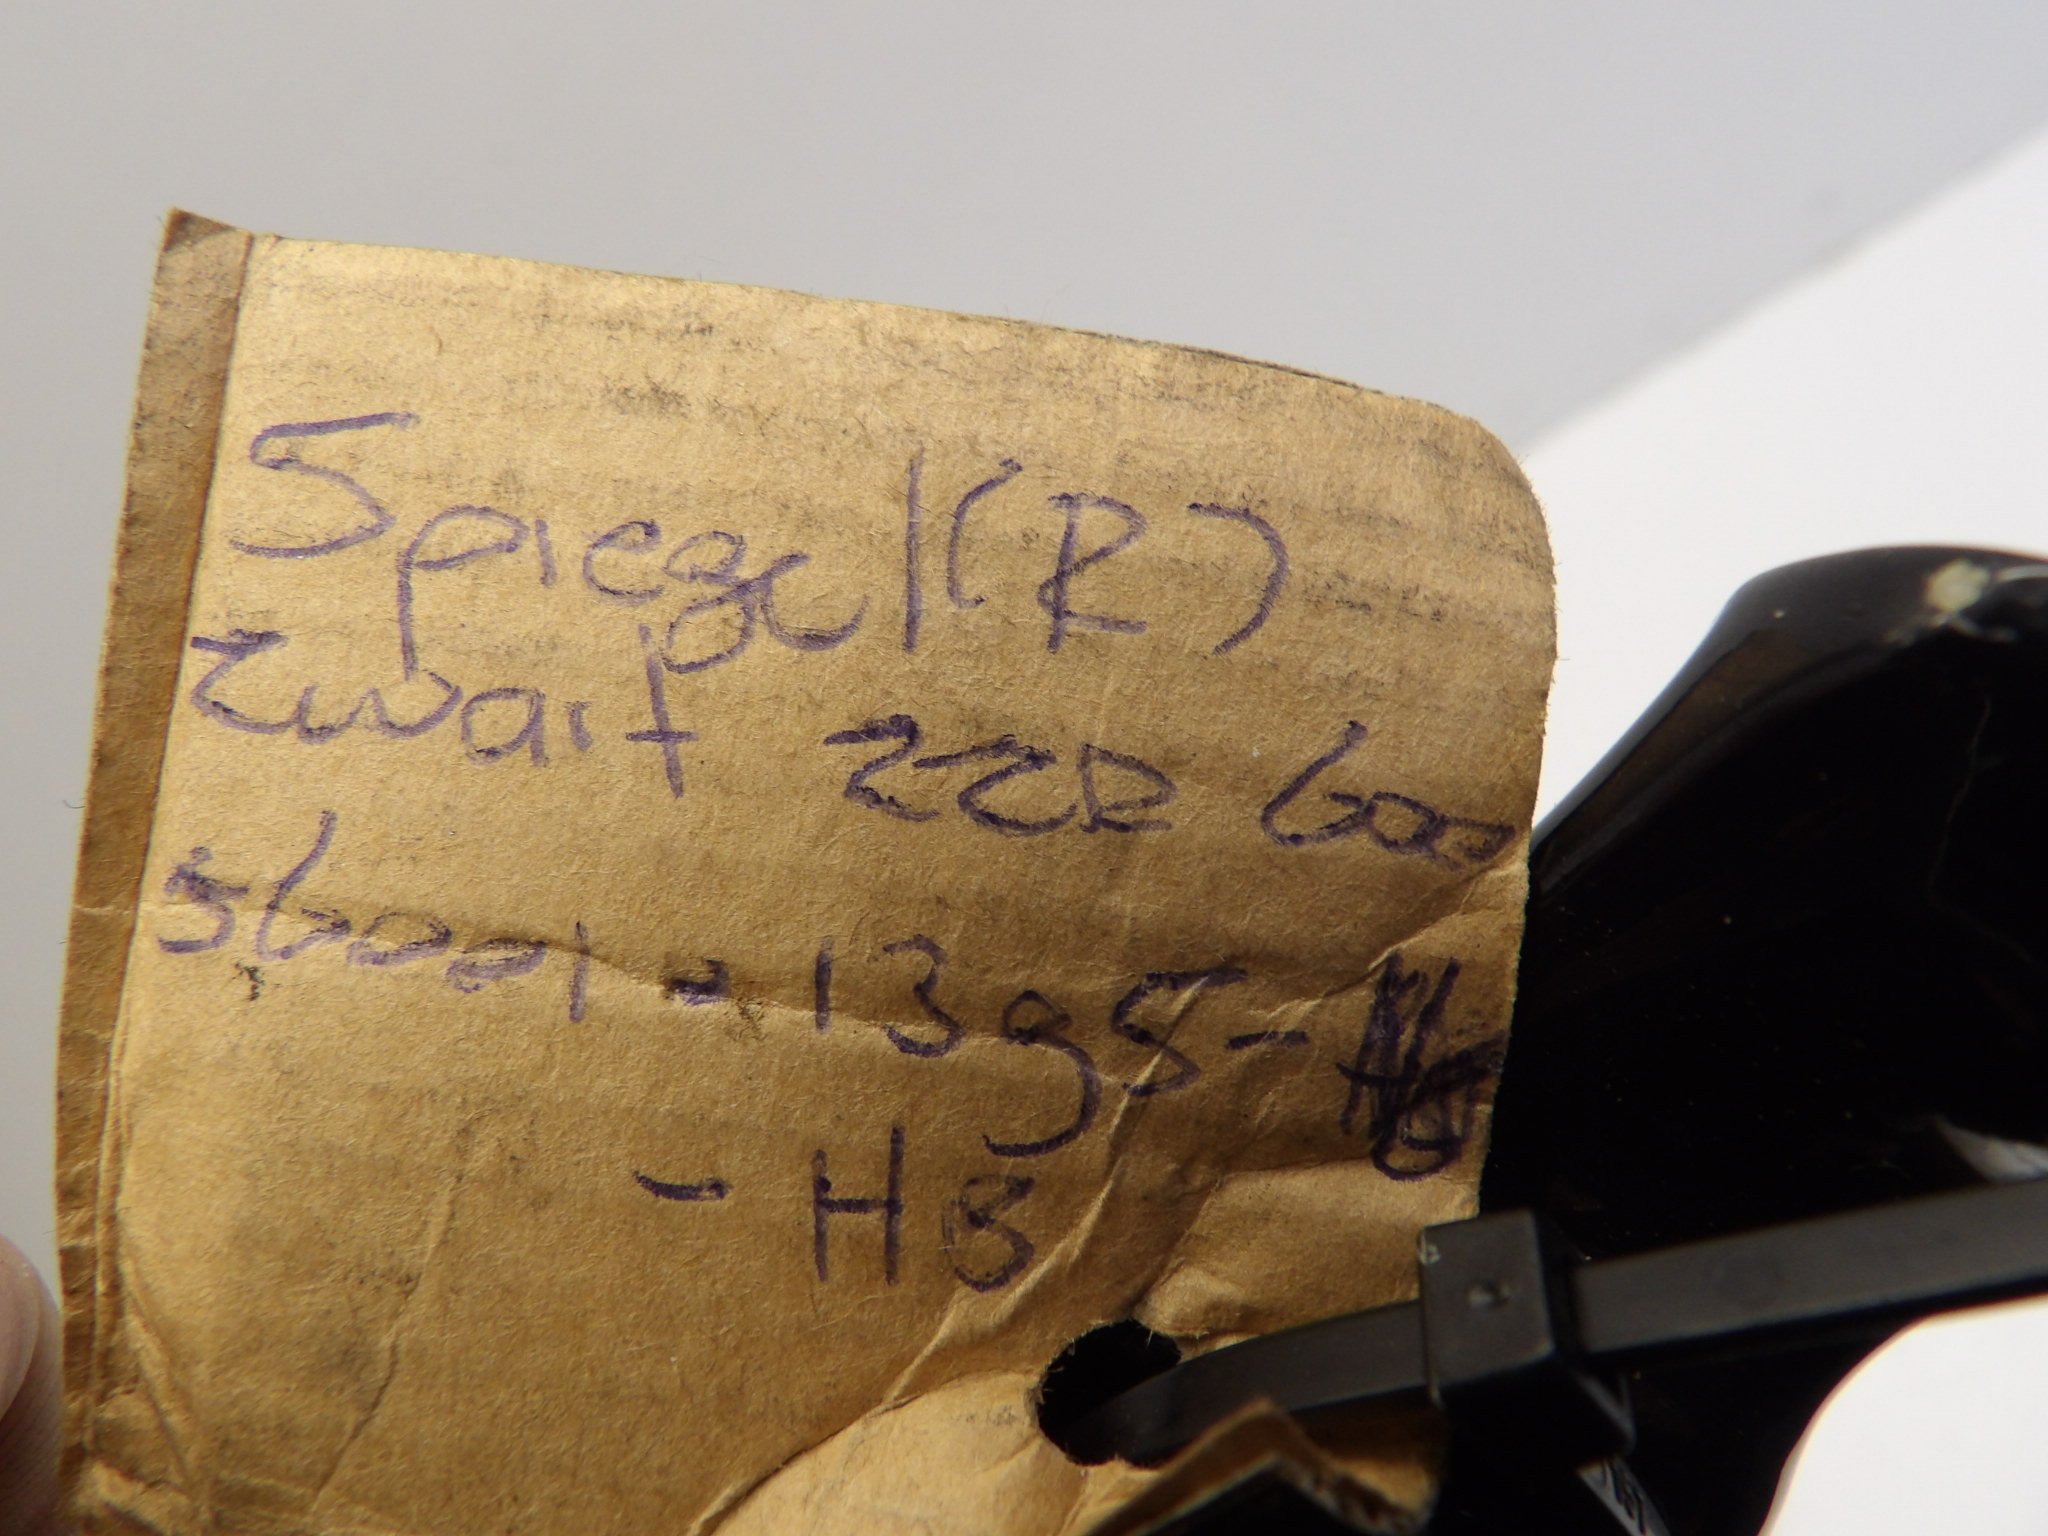 Spiegel (R)
zwart ZZR 600
56001-1395-
- H8